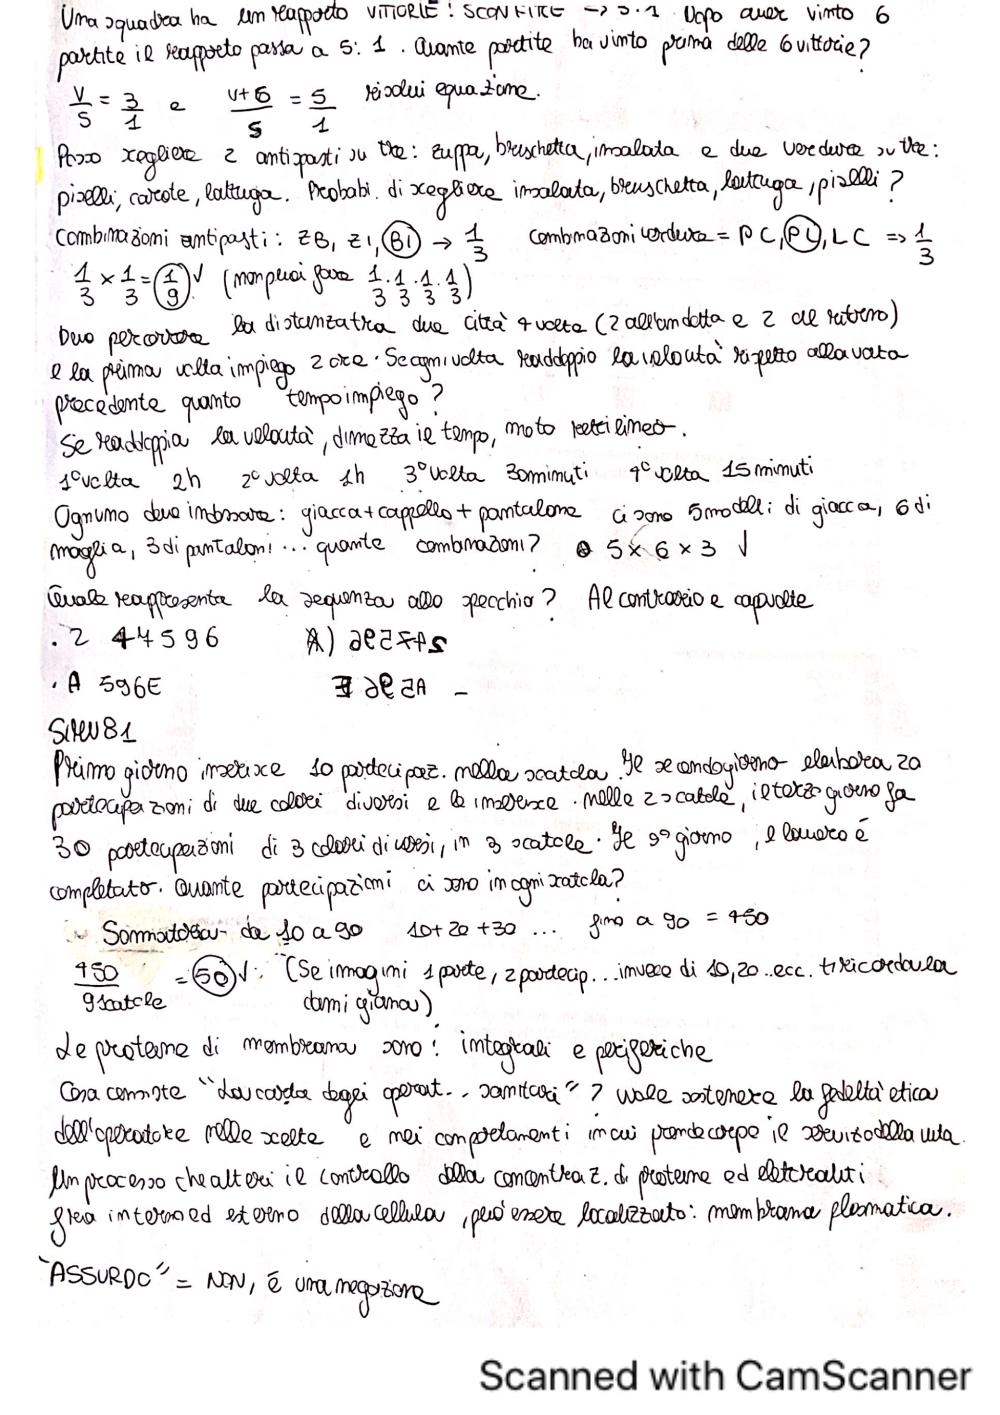 Una squadra ha un rapporto VITTORIE : SCONFITTE → 3:1 Dopo aver vinto 6
partite il rapporto passa a 5:1. Quante partite ha vinto prima delle 6 vittorie?
V/S = 3/1 e V+6/S = 5/1 risolvi equazione.
Posso scegliere 2 antipasti su tre: zuppa, bruschetta, insalata e due verdure su tre:
piselli, carote, lattuga. Probabi. di scegliere insalata, bruschetta, lattuga, piselli?
Combinazioni antipasti: ZB, ZI, BI → 1/3 combinazioni verdure = PC, PL, LC => 1/3
1/3 × 1/3 = 1/9 √ (non puoi fare 1/3 · 1/3 · 1/3 · 1/3)
Devo percorrere la distanza tra due città 4 volte (2 all'andata e 2 al ritorno)
e la prima volta impiego 2 ore. Se ogni volta raddoppio la velocità rispetto alla volta
precedente quanto tempo impiego?
Se raddoppia la velocità, dimezza il tempo, moto rettilineo.
1° volta 2h 2° volta 1h 3° volta 30 minuti 4° volta 15 minuti
Ognuno deve indossare: giacca + cappello + pantalone ci sono 5 modelli di giacca, 6 di
maglia, 3 di pantaloni ... quante combinazioni? 5 × 6 × 3 √
Quale rappresenta la sequenza allo specchio? Al contrario e capvolte
. 2 44596 A)
. A 596E
SIMU 81
Primo giorno inserisce 10 partecipaz. nella scatola. Il secondo giorno elabora 20
partecipazioni di due colori diversi e le inserisce nelle 2 scatole, il terzo giorno fa
30 partecipazioni di 3 colori diversi, in 3 scatole. Il 9° giorno, il lavoro è
completato. Quante partecipazioni ci sono in ogni scatola?
Sommatoria da 10 a 90 10+20+30 ... fino a 90 = 450
450/9 scatole = 50 √. (Se immagini 1 parte, 2 partecip... invece di 10, 20 .. ecc. ti ricorda la
damigiana)
Le proteine di membrana sono: integrali e periferiche
Cosa consiste "La carta degli operat... sanitari"? vuole sostenere la fedeltà etica
dell'operatore nelle scelte e nei comportamenti in cui prende corpo il servizio della vita.
Un processo che alteri il controllo della concentraz. di proteine ed elettroliti
fra interno ed esterno della cellula, può essere localizzato: membrana plasmatica.
"ASSURDO" = NON, è una negazione
Scanned with CamScanner